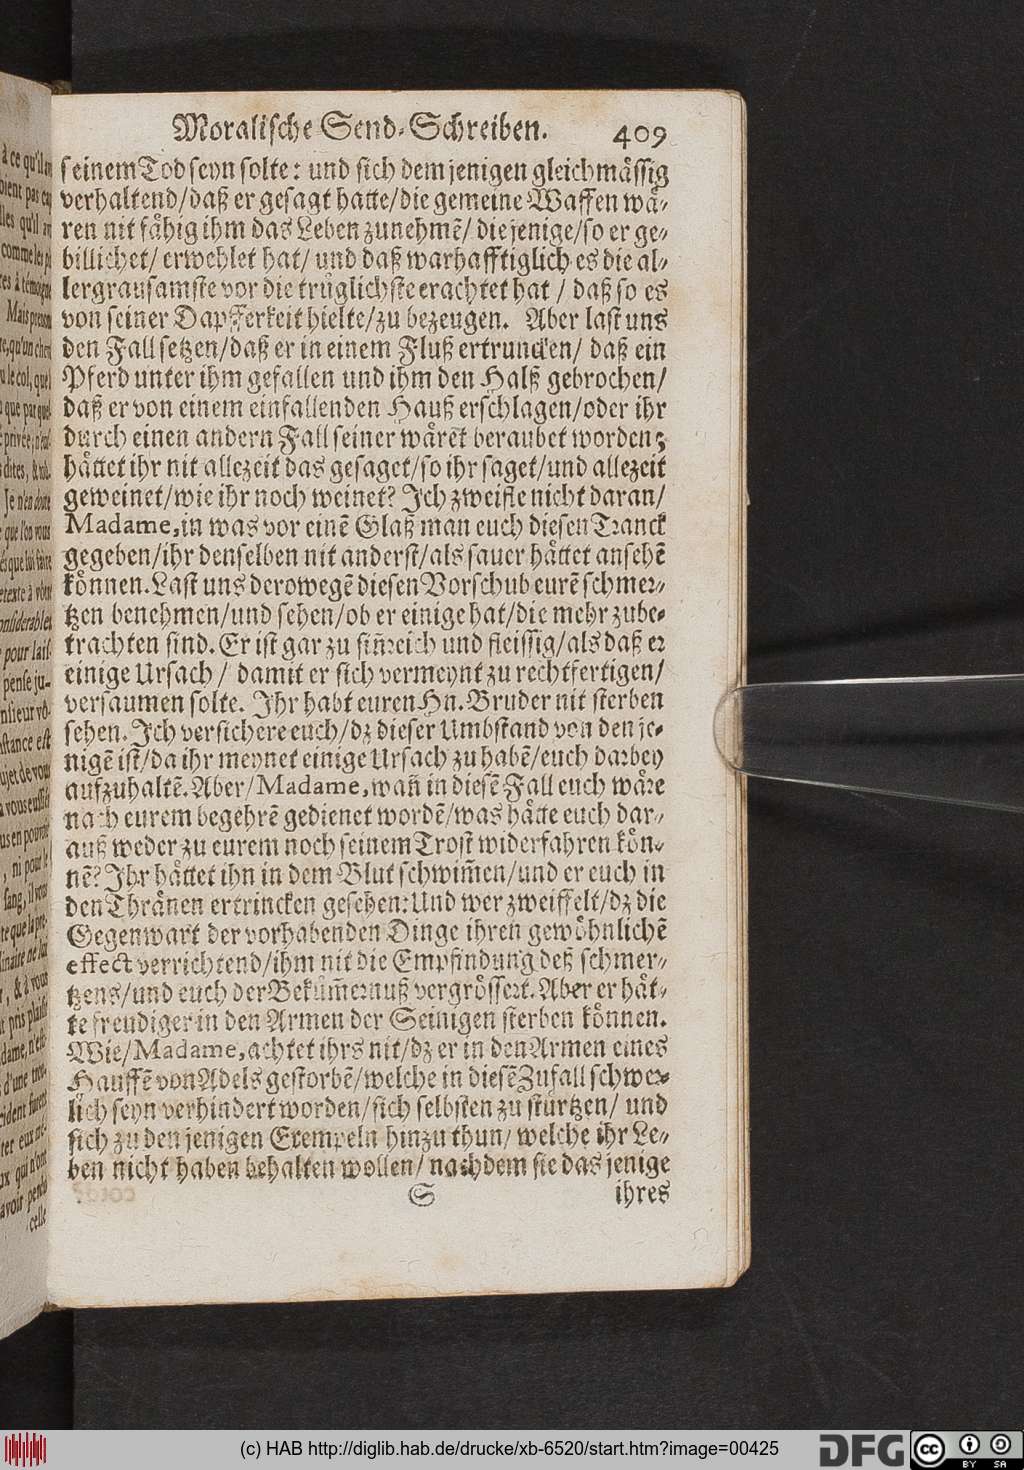 Moralische Send-Schreiben. 409
seinem Tod seyn solte: und sich dem jenigen gleichmässig
verhaltend/daß er gesagt hatte/die gemeine Waffen wä-
ren nit fähig ihm das Leben zunehmẽ/ die jenige/so er ge-
billichet/ erwehlet hat/ und daß warhafftiglich es die al-
lergrausamste vor die trüglichste erachtet hat / daß so es
von seiner Dapfferkeit hielte/zu bezeugen. Aber last uns
den Fall setzen/daß er in einem Fluß ertruncken/ daß ein
Pferd unter ihm gefallen und ihm den Halß gebrochen/
daß er von einem einfallenden Hauß erschlagen/oder ihr
durch einen andern Fall seiner wäret beraubet worden;
hättet ihr nit allezeit das gesaget/so ihr saget/und allezeit
geweinet/wie ihr noch weinet? Ich zweifle nicht daran/
Madame, in was vor einẽ Glaß man euch diesen Tranck
gegeben/ihr denselben nit anderst/als sauer hättet ansehẽ
können. Last uns derowegẽ diesen Vorschub eurẽ schmer-
tzen benehmen/und sehen/ob er einige hat/die mehr zube-
trachten sind. Er ist gar zu sin̄reich und fleissig/als daß er
einige Ursach / damit er sich vermeynt zu rechtfertigen/
versaumen solte. Ihr habt euren Hn. Bruder nit sterben
sehen. Ich versichere euch/dz dieser Umbstand von den je-
nigẽ ist/da ihr meynet einige Ursach zu habẽ/euch darbey
aufzuhaltẽ. Aber/Madame, wan̄ in diesẽ Fall euch wäre
nach eurem begehrẽ gedienet wordẽ/was hätte euch dar-
auß weder zu eurem noch seinem Trost widerfahren kön-
nẽ? Ihr hättet ihn in dem Blut schwim̄en/und er euch in
den Thränen ertrincken gesehen: Und wer zweiffelt/dz die
Gegenwart der vorhabenden Dinge ihren gewöhnlichẽ
effect verrichtend/ihm nit die Empfindung deß schmer-
tzens/und euch der Beküm̄ernuß vergrössert. Aber er hät-
te freudiger in den Armen der Seinigen sterben können.
Wie/Madame, achtet ihrs nit/dz er in den Armen eines
Hauffẽ von Adels gestorbẽ/welche in diesẽ Zufall schwer-
lich seyn verhindert worden/sich selbsten zu stürtzen/ und
sich zu den jenigen Exempeln hinzu thun/ welche ihr Le-
ben nicht haben behalten wollen/ nachdem sie das jenige
S ihres
à ce qu'il
pas
qu'il
comme les
Mais
qu'un
le col, que
que par
privée
dites, &
Je n'en doute
que l'on vous
que
à vôtre
considerables
pour lais-
pense ju-
vô-
est
de vous
vous
en pouvoir
ni pour le
sang, il vous
que la
de
& à vous
pris plaisir
d'une
qui n'ont
avoir perdu
celle
(c) HAB http://diglib.hab.de/drucke/xb-6520/start.htm?image=00425
DFG
cc
BY SA